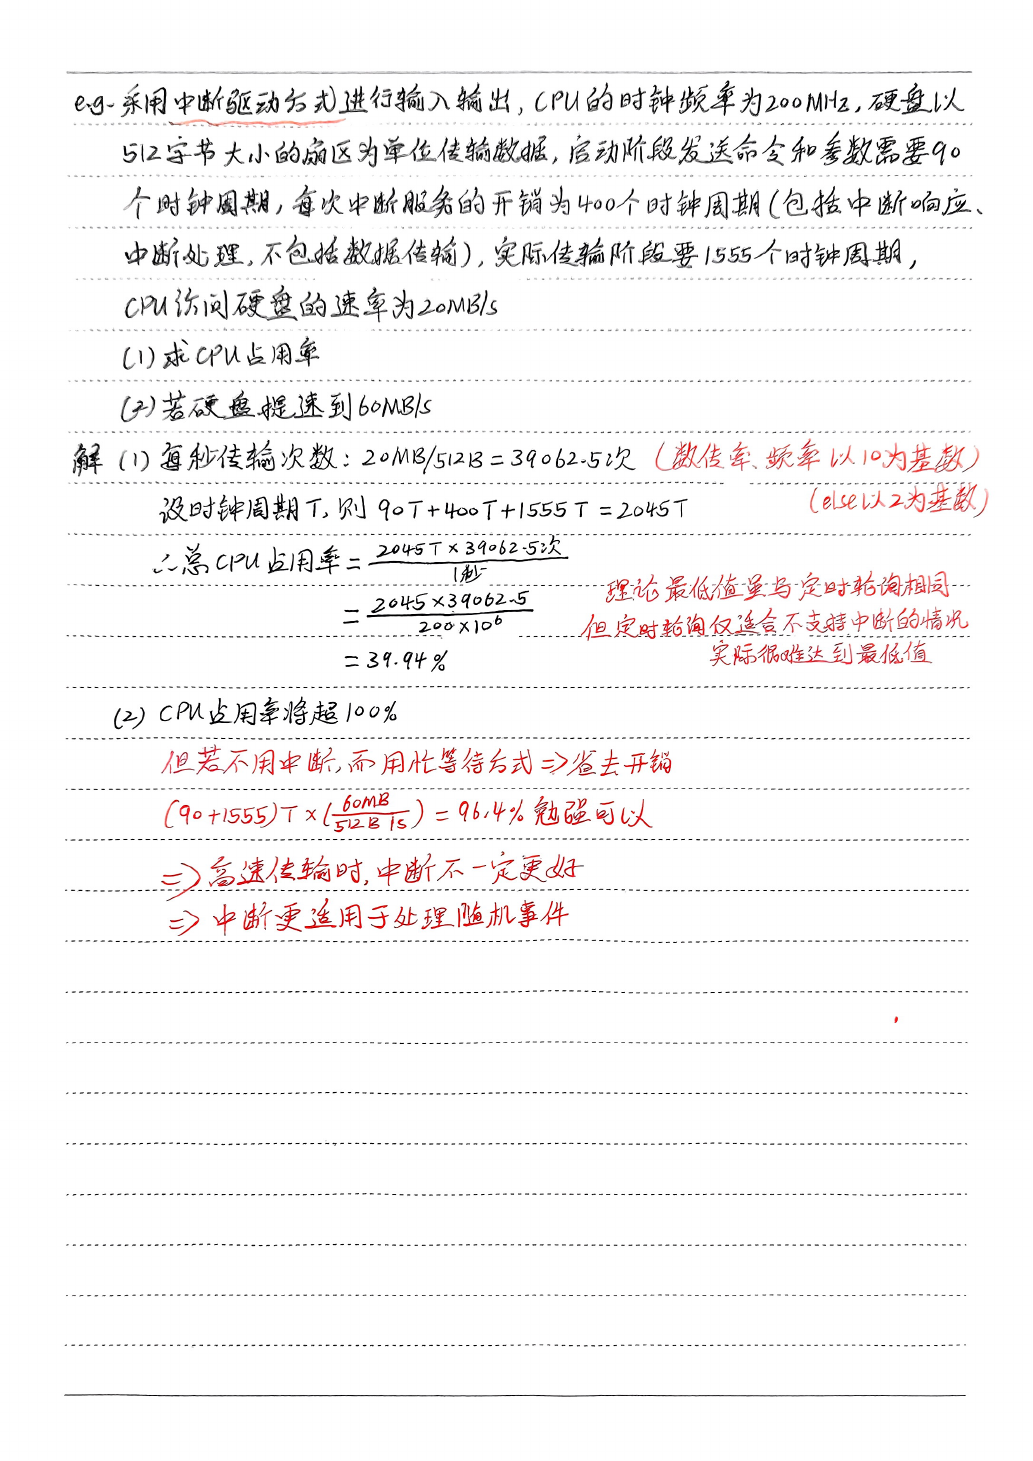 e.g. 采用中断驱动方式进行输入输出，CPU的时钟频率为200MHz，硬盘以
512字节大小的扇区为单位传输数据，启动阶段发送命令和参数需要90
个时钟周期，每次中断服务的开销为400个时钟周期(包括中断响应、
中断处理，不包括数据传输)，实际传输阶段要1555个时钟周期，
CPU访问硬盘的速率为20MB/s
(1)求CPU占用率
(2)若硬盘提速到60MB/s
解 (1) 每秒传输次数：20MB/512B=39062.5次 (数传率、频率以10为基数)
(else以2为基数)
设时钟周期T，则 90T+400T+1555T=2045T
∴总CPU占用率= 2045T×39062.5次 / 1秒
= 2045×39062.5 / 200×10⁶
=39.94%
理论最低值虽与定时轮询相同
但定时轮询仅适合不支持中断的情况
实际很难达到最低值
(2) CPU占用率将超100%
但若不用中断，而用忙等待方式⇒省去开销
(90+1555)T×(60MB / 512B 1s)=96.4% 勉强可以
⇒高速传输时，中断不一定更好
⇒中断更适用于处理随机事件